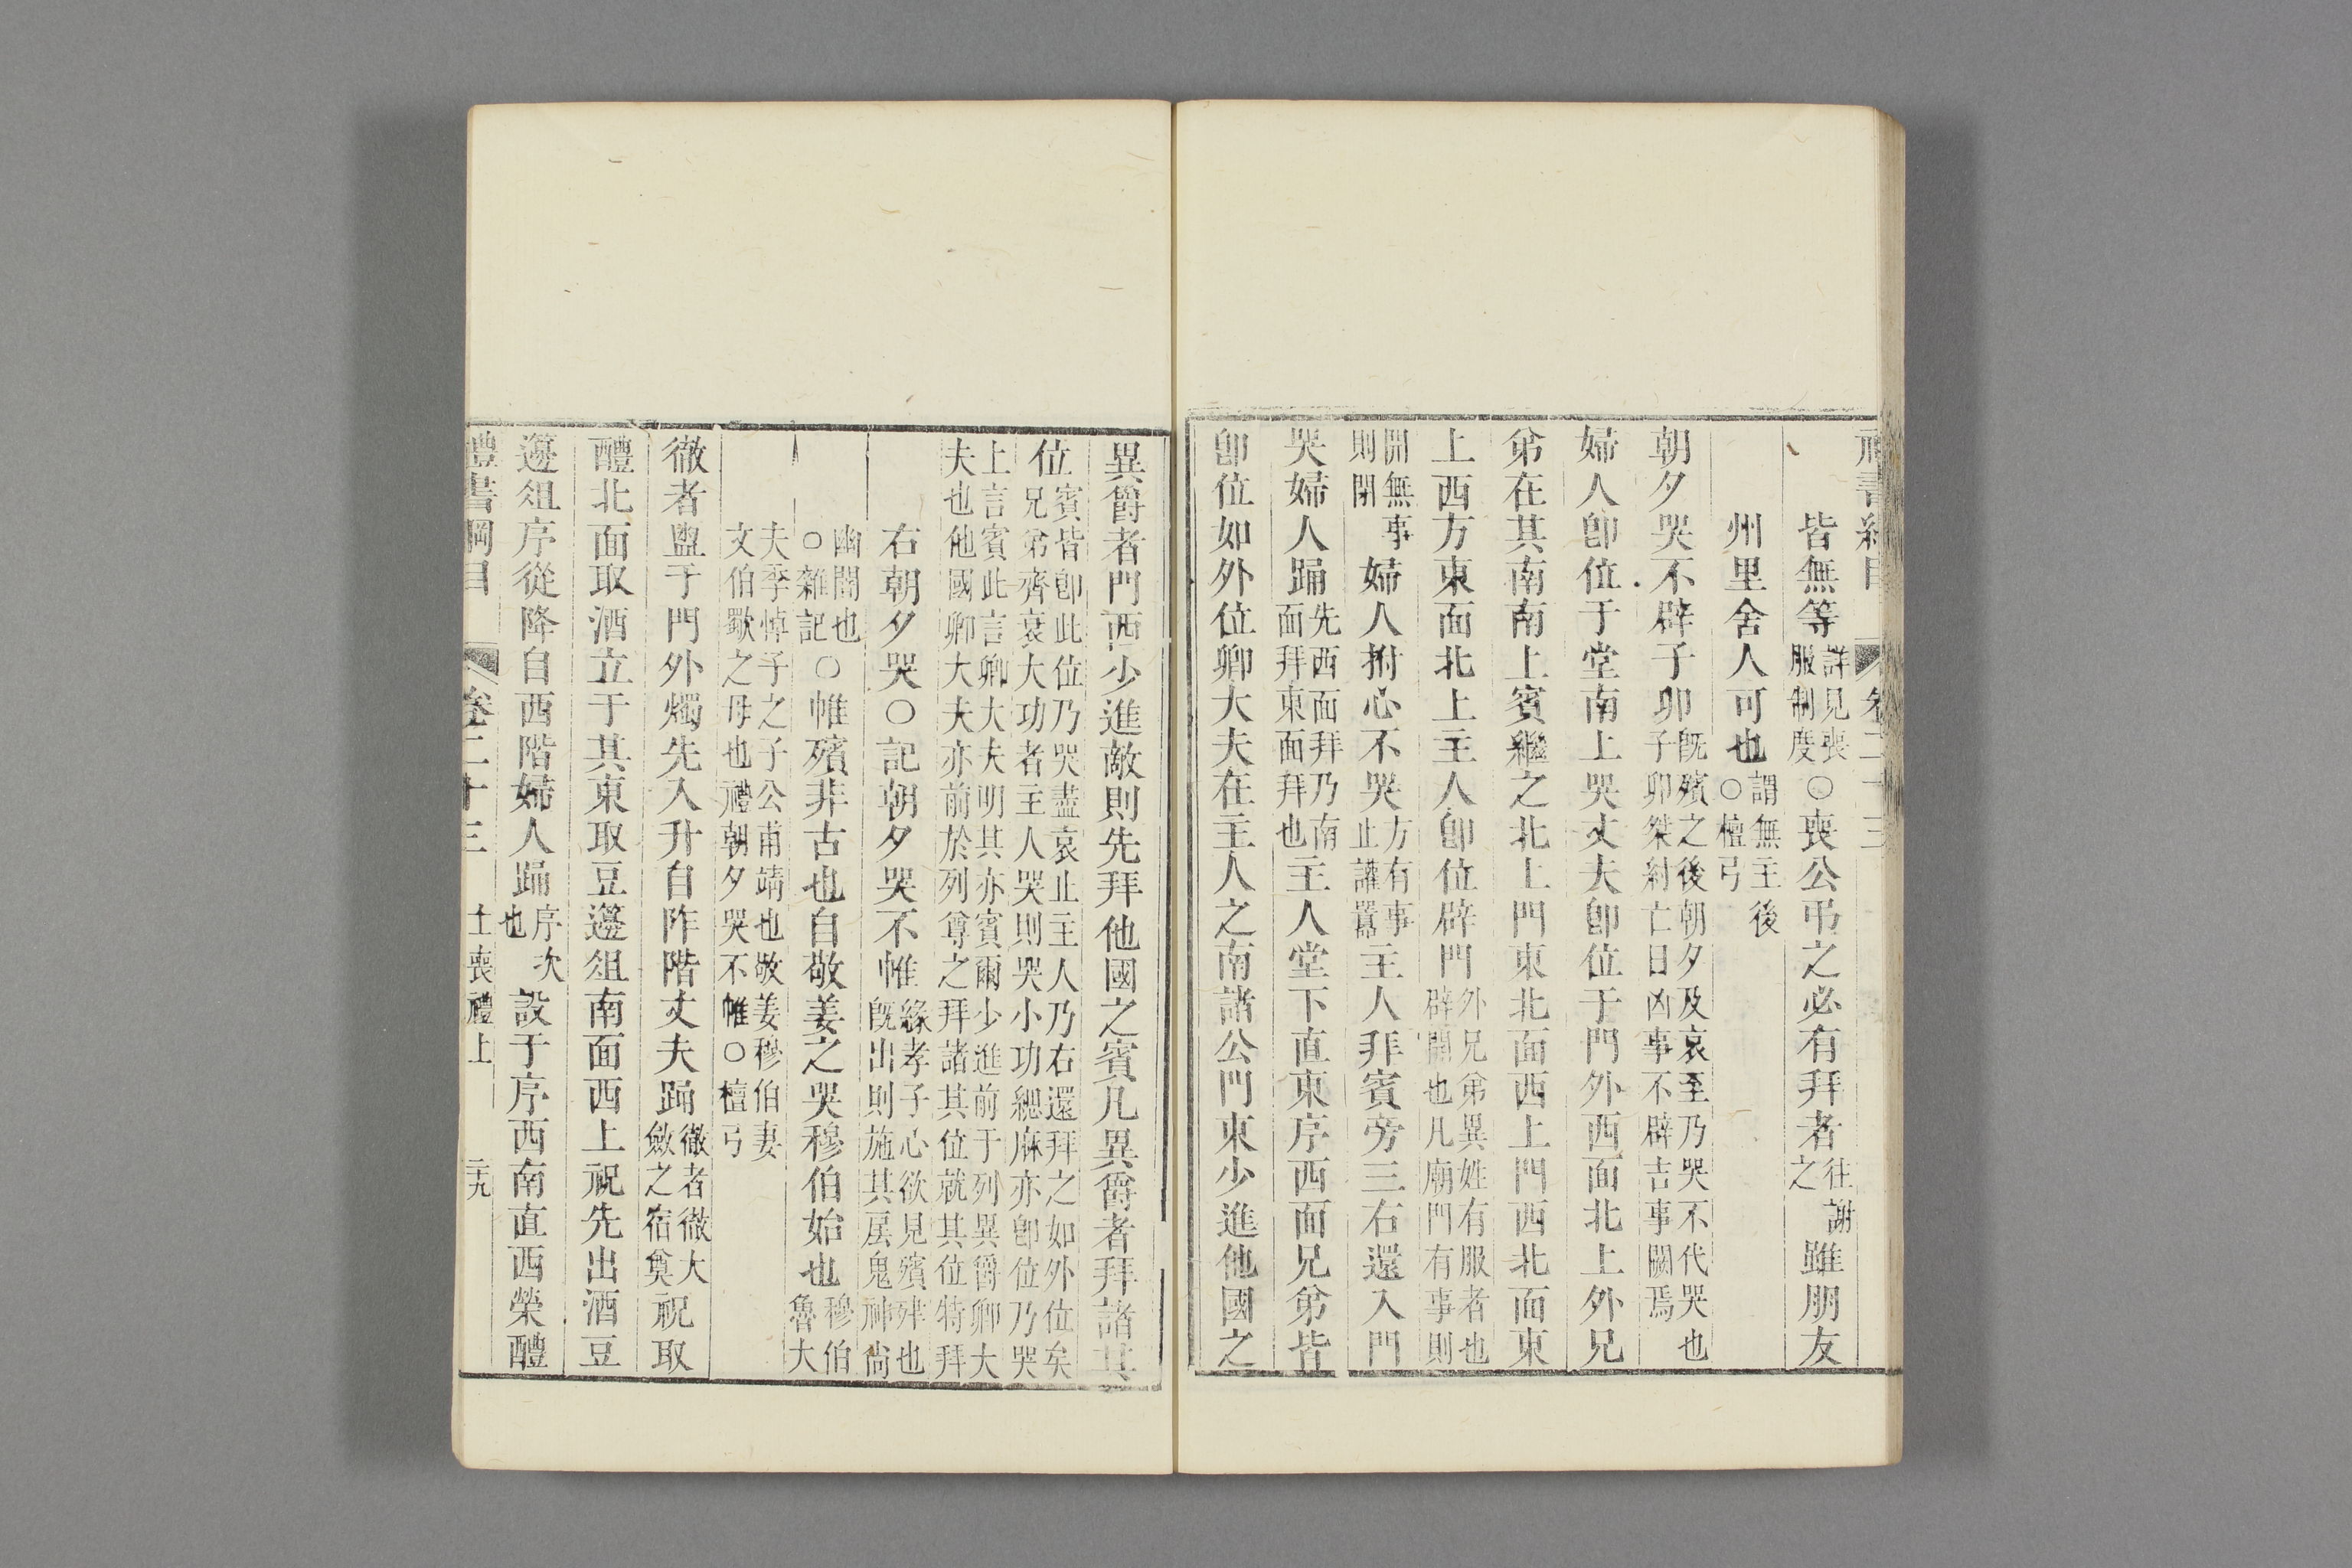 皆無等詳見喪服制度○喪公弔之必有拜者往謝之雖朋友
州里舍人可也謂無主後○檀弓
朝夕哭不辟子卯既殯之後朝夕及哀至乃哭不代哭也子卯桀紂亡日凶事不辟吉事闕焉
婦人卽位于堂南上哭丈夫卽位于門外西面北上外兄
弟在其南南上賓繼之北上門東北面西上門西北面東
上西方東面北上主人卽位辟門外兄弟異姓有服者也辟開也凡廟門有事則
開無事則閉婦人拊心不哭方有事止讙囂主人拜賓旁三右還入門
哭婦人踊先西面拜乃南面拜東面拜也主人堂下直東序西面兄弟皆
卽位如外位卿大夫在主人之南諸公門東少進他國之
異爵者門西少進敵則先拜他國之賓凡異爵者拜諸其
位賓皆卽此位乃哭盡哀止主人乃右還拜之如外位矣兄弟齊衰大功者主人哭則哭小功緦麻亦卽位乃哭
上言賓此言卿大夫明其亦賓爾少進前于列異爵卿大夫也他國卿大夫亦前於列尊之拜諸其位就其位特拜
右朝夕哭○記朝夕哭不帷緣孝子心欲見殯肂也既出則施其扆鬼神尚
幽闇也○雜記○帷殯非古也自敬姜之哭穆伯始也穆伯魯大
夫季悼子之子公甫靖也敬姜穆伯妻文伯歜之母也禮朝夕哭不帷○檀弓
徹者盥于門外燭先入升自阼階丈夫踊徹者徹大斂之宿奠祝取
醴北面取酒立于其東取豆籩俎南面西上祝先出酒豆
籩俎序從降自西階婦人踊序次也設于序西南直西榮醴
禮書綱目 卷二十三 士喪禮上 二十九